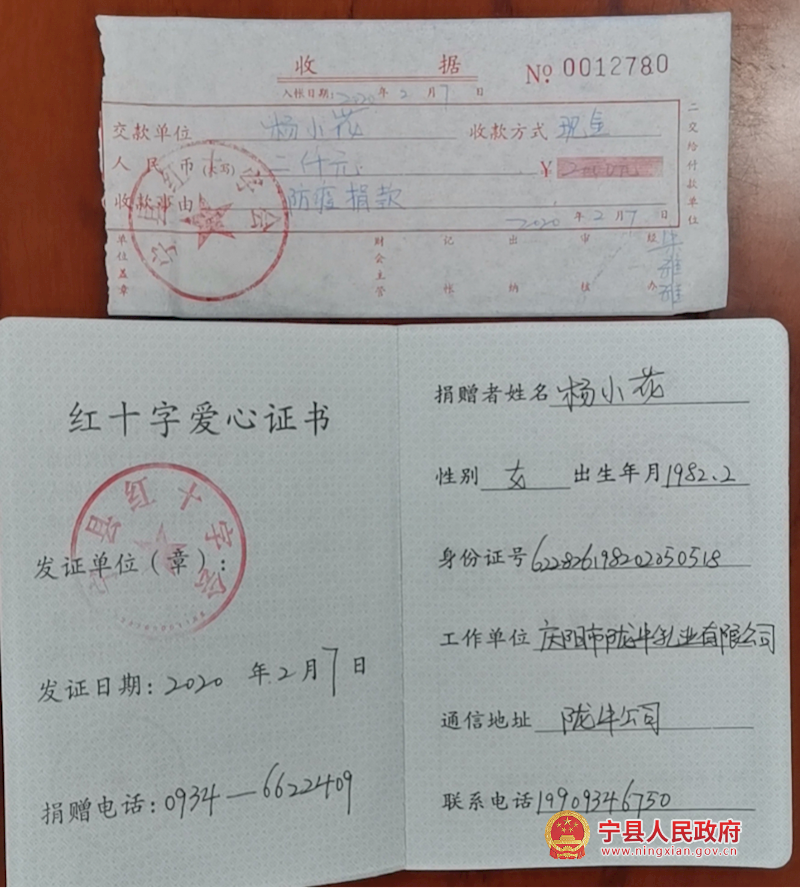 收 据
No 0012780
入帐日期 2020 年 2 月 7 日
交款单位 杨小花 收款方式 现金
人民币(大写) 二仟元 ¥ 2000元
收款事由 防疫捐款
2020 年 2 月 7 日
二交给付款单位
单位盖章 财会主管 记帐 出纳 审核 经办
宁县红十字会
红十字爱心证书
宁县红十字会
发证单位(章):
发证日期: 2020 年 2 月 7 日
捐赠电话: 0934—6622409
捐赠者姓名 杨小花
性别 女 出生年月 1982.2
身份证号 622826198202050518
工作单位 庆阳市陇牛乳业有限公司
通信地址 陇牛公司
联系电话 19909346750
宁县人民政府
www.ningxian.gov.cn